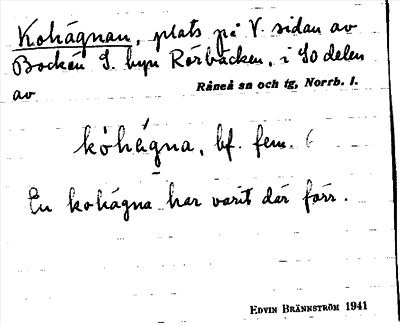 Kohägnan, plats på V. sidan av
Bocken I. byn Rörbäcken, i So delen
av Råneå sn och tg, Norrb. l.
kóhä́gna, bf. fem.
En kohägna har varit där förr.
EDVIN BRÄNNSTRÖM 1941